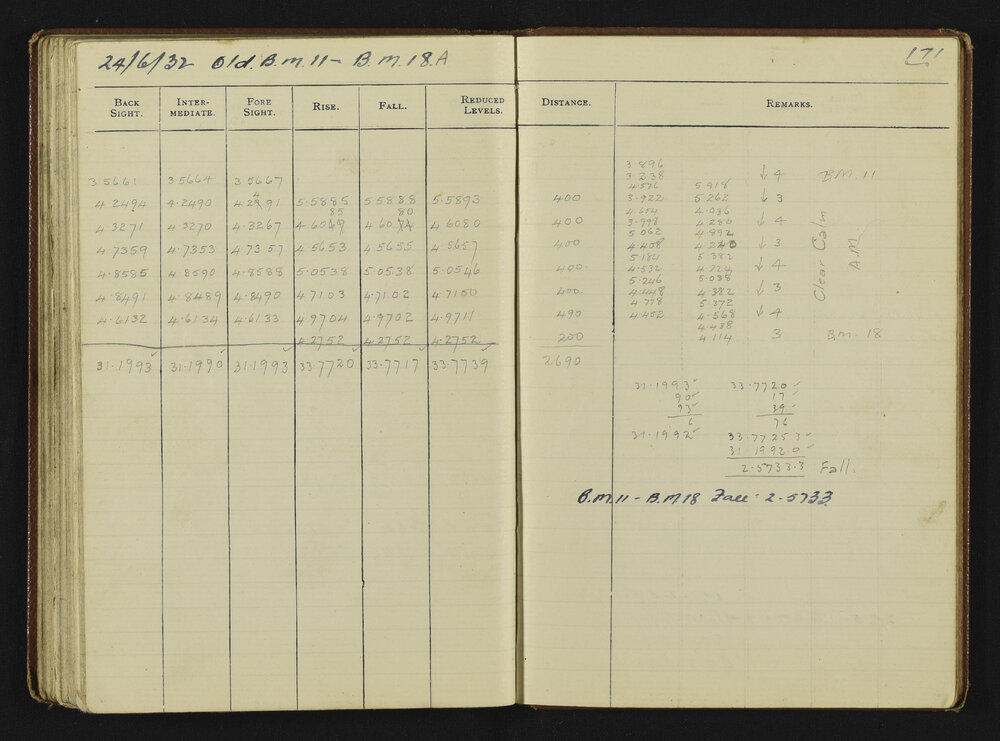 24/6/32 Old. B.M.11 - B.M.18.A
171
BACK SIGHT. INTER-MEDIATE. FORE SIGHT. RISE. FALL. REDUCED LEVELS. DISTANCE. REMARKS.
3.896
3.5661 3.5664 3.5667 3.238 ↓ 4 B.M. 11
4.576 5.918
4
4.2494 4.2490 4.2491 5.5885 5.5888 5.5893 400 3.922 5.262 ↓ 3
85 80 4.654 4.936
4.3271 4.3270 4.3267 4.6049 4.6074 4.6080 400 3.998 4.280 ↓ 4
5.062 4.892
4.7359 4.7353 4.7357 4.5653 4.5655 4.5657 400 4.408 4.240 ↓ 3
5.184 5.382
4.8585 4.8590 4.8588 5.0538 5.0538 5.0546 400 4.532 4.724 ↓ 4
5.246 5.038
4.8491 4.8489 4.8490 4.7103 4.7102 4.7100 400 4.448 4.382 ↓ 3
4.778 5.372
4.6132 4.6134 4.6133 4.9704 4.9702 4.9711 490 4.452 4.568 ↓ 4
4.438
4.2752 4.2752 4.2752 200 4.114 3 B.M. 18
31.1993 31.1990 31.1993 33.7720 33.7717 33.7739 2690
Clear Calm
A.M.
31.1993 33.7720
90 17
93 39
6 76
31.1992 33.7725.3
31.1992.0
2.5733.3 Fall.
B.M.11 - B.M.18 Fall - 2.5733